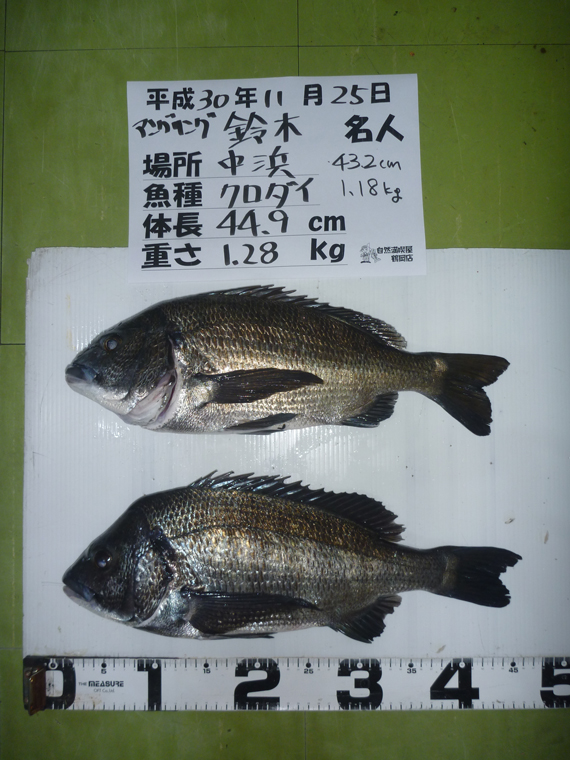 平成30年11月25日
アングリング 鈴木 名人
場所 中浜 43.2cm
魚種 クロダイ 1.18kg
体長 44.9 cm
重さ 1.28 kg
自然満喫屋
鶴岡店
0 5 1 15 2 25 3 35 4 45 5
THE MEASURE